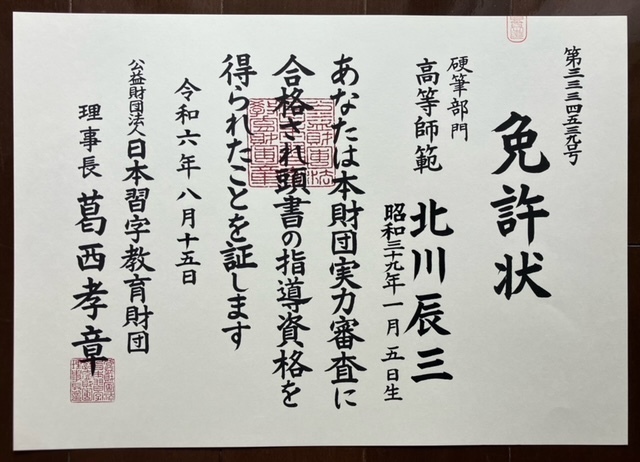 第三三三四五三九号
免許状
硬筆部門
高等師範
北川辰三
昭和三十九年一月五日生
あなたは本財団実力審査に
合格され頭書の指導資格を
得られたことを証します
令和六年八月十五日
公益財団法人日本習字教育財団
理事長 葛西孝章